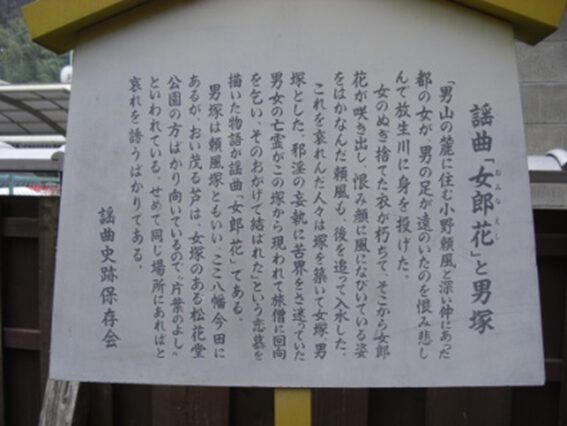 謡曲「女郎花」と男塚
おんなえし
「男山の麓に住む小野頼風と深い仲にあった
都の女が、男の足が遠のいたのを恨み悲し
んで放生川に身を投げた。
女のぬぎ捨てた衣が朽ちて、そこから女郎
花が咲き出し、恨み顔に風になびいている姿
をはかなんだ頼風も、後を追って入水した。
これを哀れんだ人々は塚を築いて女塚、男
塚とした。邪淫の妄執に苦界をさ迷っていた
男女の亡霊がこの塚から現われて旅僧に回向
を乞い、そのおかげで結ばれた」という恋慕を
描いた物語が謡曲「女郎花」である。
男塚は頼風塚ともいい、ここ八幡今田に
あるが、おい茂る芦は、女塚のある松花堂
公園の方ばかり向いているので、"片葉のよし"
といわれている。せめて同じ場所にあればと
哀れを誘うばかりである。
謡曲史跡保存会